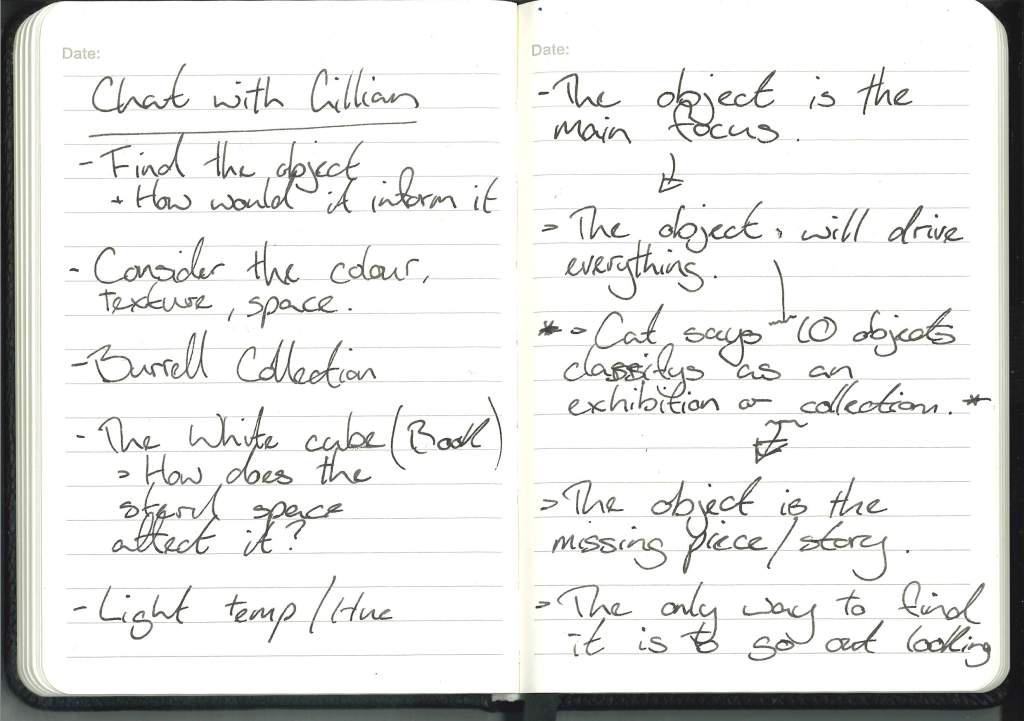 Date:
Chat with Gillian
- Find the object
+ How would it inform it
- Consider the colour,
texture, space.
- Burrell Collection
- The White cube (Book)
> How does the
steril space
affect it?
- Light temp/Hue
Date:
- The object is the
main focus.
> The object, will drive
everything.
* > Cat says 10 objects
classifys as an
exhibition or collection. *
> The object is the
missing piece/story.
> The only way to find
it is to go out looking